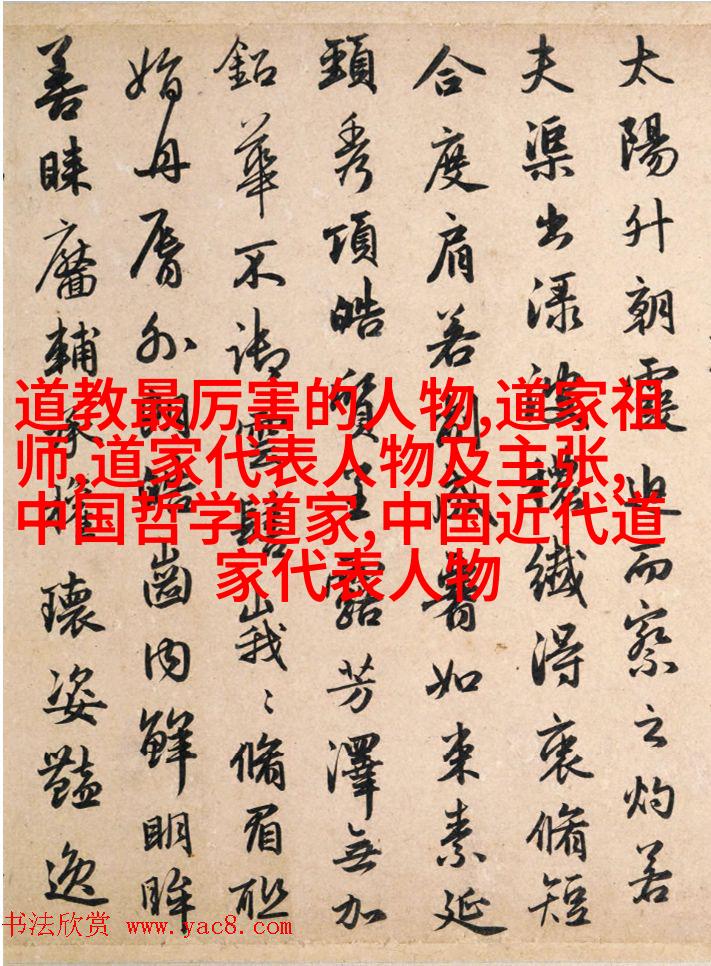 太陽升朝霞迫而察之灼若
夫渠出渌波襛纖得衷脩短
合度肩若削成如束素延
頸秀項皓質呈露芳澤無加
鉛華不御雲髻峩〻脩眉聯
娟丹脣外朗皓齒内鮮明眸
善睞靨輔承權瓌姿豔逸
道教最厉害的人物,道家祖
师,道家代表人物及主张,
中国哲学道家,中国近代道
家代表人物
书法欣赏 www.yac8.com